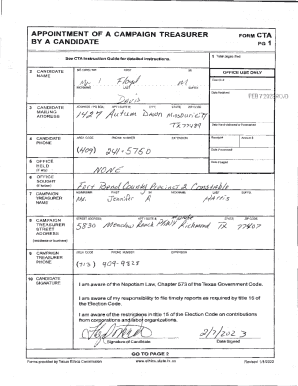 APPOINTMENT OF A CAMPAIGN TREASURER
BY A CANDIDATE
FORM CTA
PG 1
See CTA Instruction Guide for detailed instructions.
1 Total pages filed:
2 CANDIDATE NAME
MS / MRS / MR FIRST MI
Mr. Floyd M
NICKNAME LAST SUFFIX
Davis
OFFICE USE ONLY
Date Received
3 CANDIDATE MAILING ADDRESS
ADDRESS / PO BOX; APT / SUITE #; CITY; STATE; ZIP CODE
1427 Autumn Dawn
TX 77489
4 CANDIDATE PHONE
AREA CODE PHONE NUMBER EXTENSION
(409) 241-5750
Receipt # Amount $
Date Processed
5 OFFICE HELD
(if any)
NONE
Date Imaged
6 OFFICE SOUGHT
(if known)
Fort Bend County Precinct 2 Constable
7 CAMPAIGN TREASURER NAME
MS/MRS/MR FIRST MI NICKNAME LAST SUFFIX
Jennifer R Harris
8 CAMPAIGN TREASURER STREET ADDRESS
(residence or business)
STREET ADDRESS APT / SUITE #; CITY; STATE; ZIP CODE
5830 Meadow Ranch Richmond TX 77407
9 CAMPAIGN TREASURER PHONE
AREA CODE PHONE NUMBER EXTENSION
(713) 409-9828
10 CANDIDATE SIGNATURE
I am aware of the Nepotism Law, Chapter 573 of the Texas Government Code.
I am aware of my responsibility to file timely reports as required by title 15 of
the Election Code.
I am aware of the restrictions in title 15 of the Election Code on contributions
from corporations and labor organizations.
2/7/2023
Signature of Candidate Date Signed
GO TO PAGE 2
Forms provided by Texas Ethics Commission www.ethics.state.tx.us